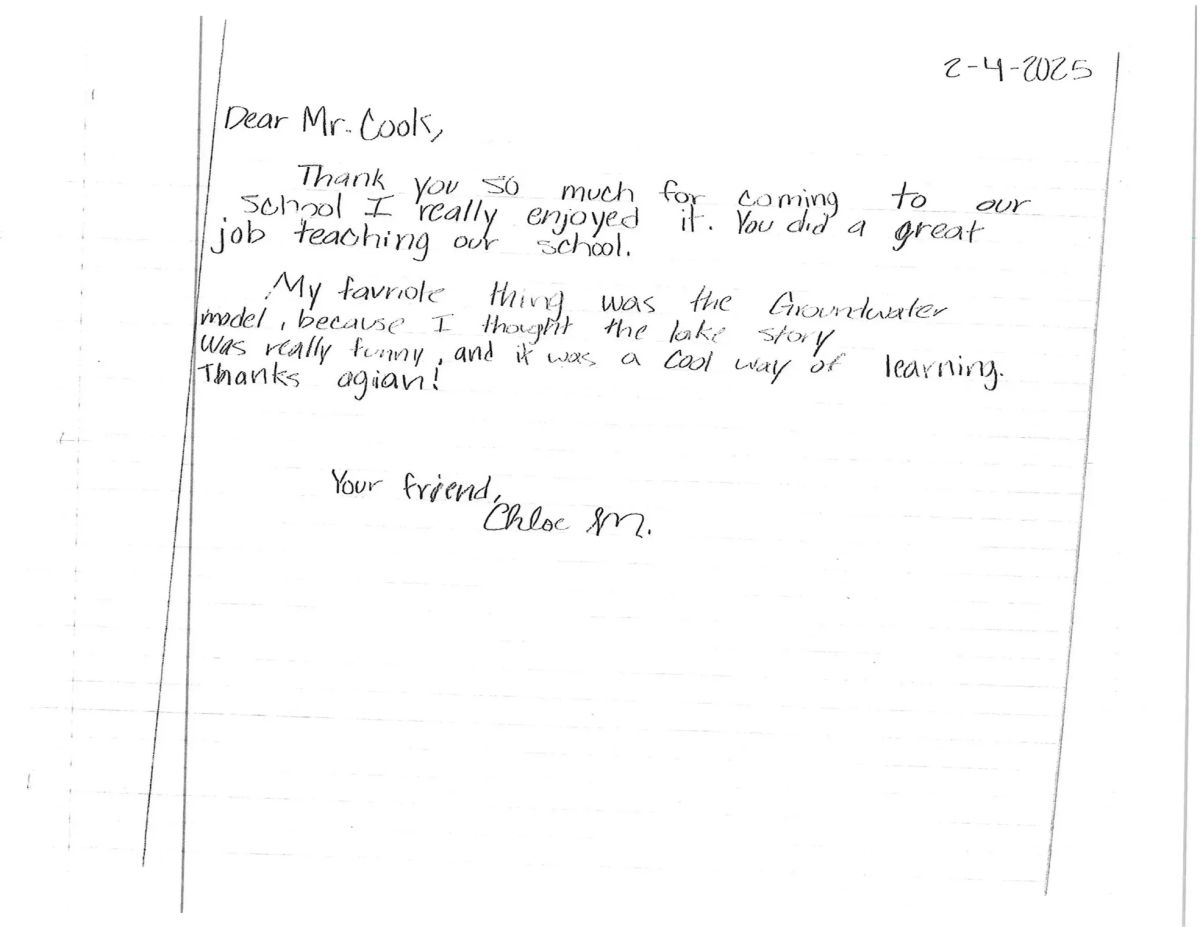 2-4-2025
Dear Mr. Cook,
Thank you so much for coming to our
school I really enjoyed it. You did a great
job teaching our school.
My favriote thing was the Groundwater
model, because I thought the lake story
was really funny, and it was a cool way of learning.
Thanks agian!
Your friend,
Chloe M.